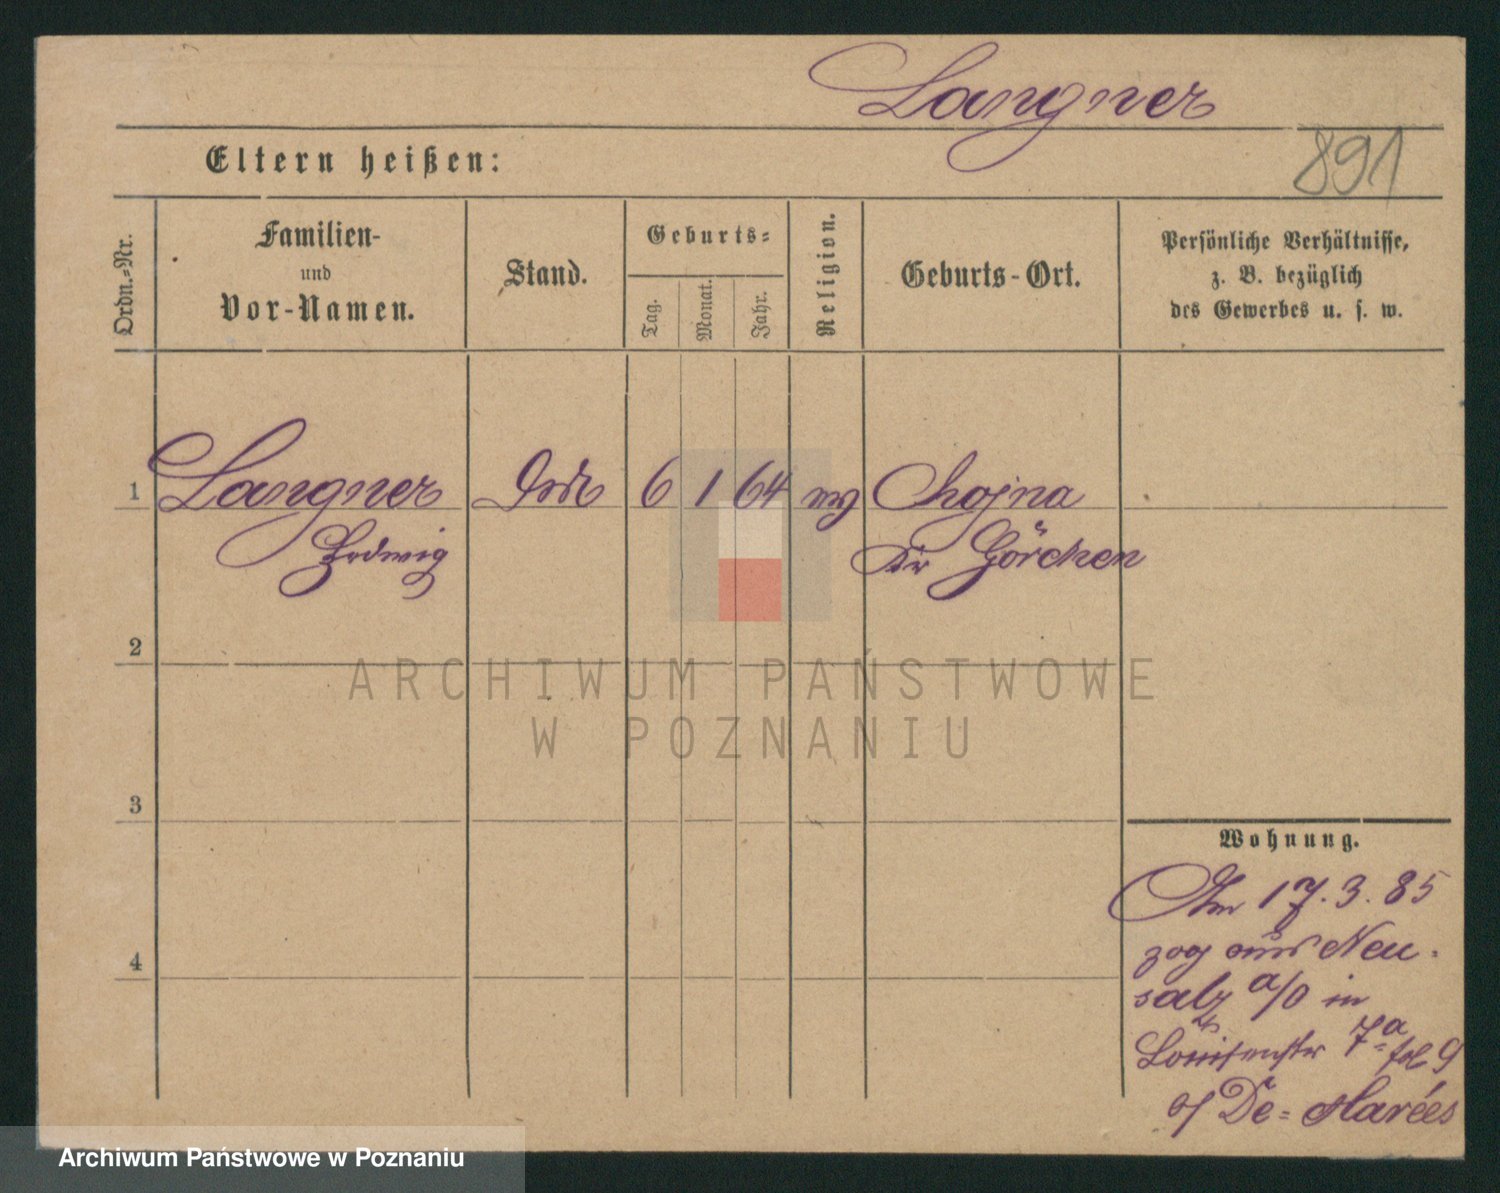 Langner
891
Eltern heißen:
Ordn.-Nr.
Familien-
und
Vor-Namen.
Stand.
Geburts-
Tag.
Monat.
Jahr.
Religion.
Geburts-Ort.
Persönliche Verhältnisse,
z. B. bezüglich
des Gewerbes u. s. w.
1 Langner 6 1 64 Chojna
Görchen
2
ARCHIWUM PAŃSTWOWE
W POZNANIU
3
Wohnung.
Am 17.3.85
zog aus Neu-
4
salz a/O in
Louisenstr 7a fol 9
De-Marées
Archiwum Państwowe w Poznaniu